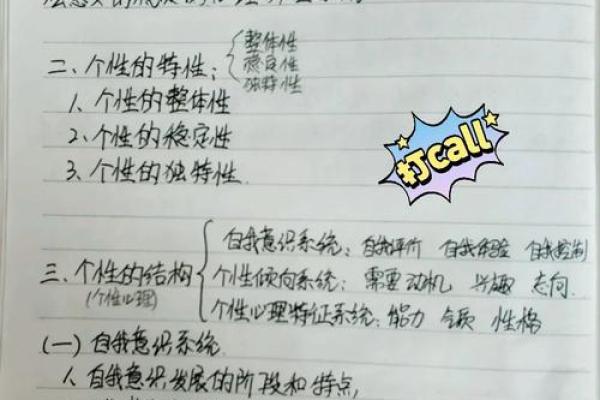 二、个性的特性：{整体性
稳定性
独特性
1、个性的整体性
2、个性的稳定性
3、个性的独特性
打call
三、个性的结构
(个性心理)
自我意识系统：自我评价 自我体验 自我控制
个性倾向系统：需要 动机 兴趣 志向
个性心理特征系统：能力 气质 性格
(一) 自我意识系统
1、自我意识发展的阶段和特点，